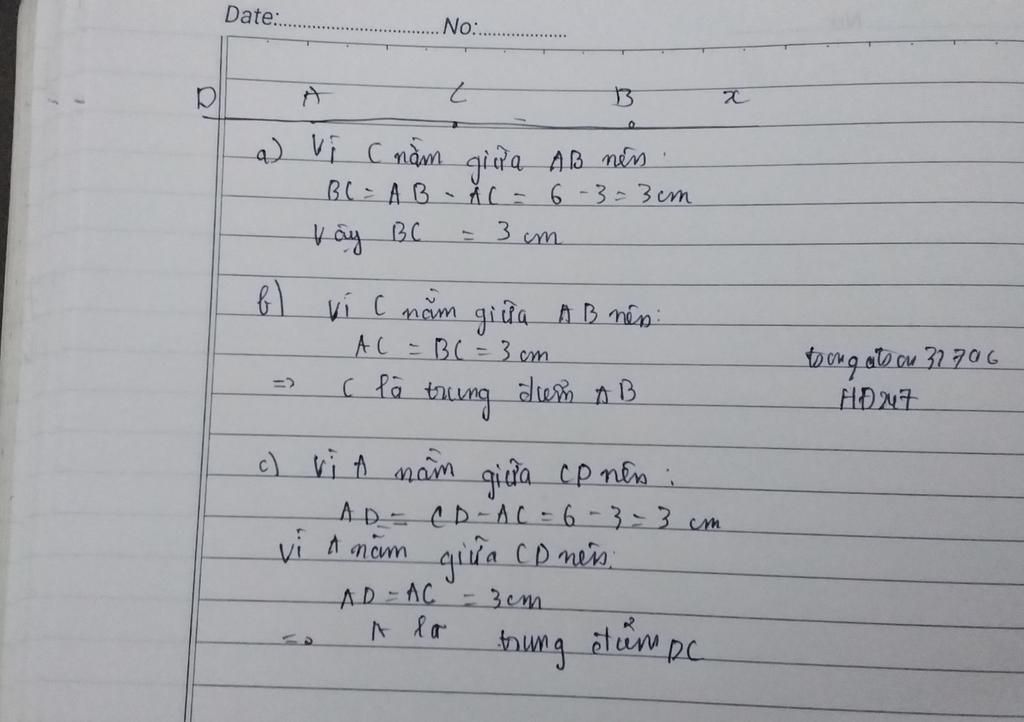 Date:.................................No:...................
D A C B x
a) Vì C nằm giữa AB nên:
BC = AB - AC = 6 - 3 = 3 cm
Vậy BC = 3 cm
b) Vì C nằm giữa AB nên:
AC = BC = 3 cm
=> C là trung điểm AB
HĐ247
c) Vì A nằm giữa CD nên:
AD = CD - AC = 6 - 3 = 3 cm
Vì A nằm giữa CD nên:
AD = AC = 3 cm
=> A là trung điểm DC